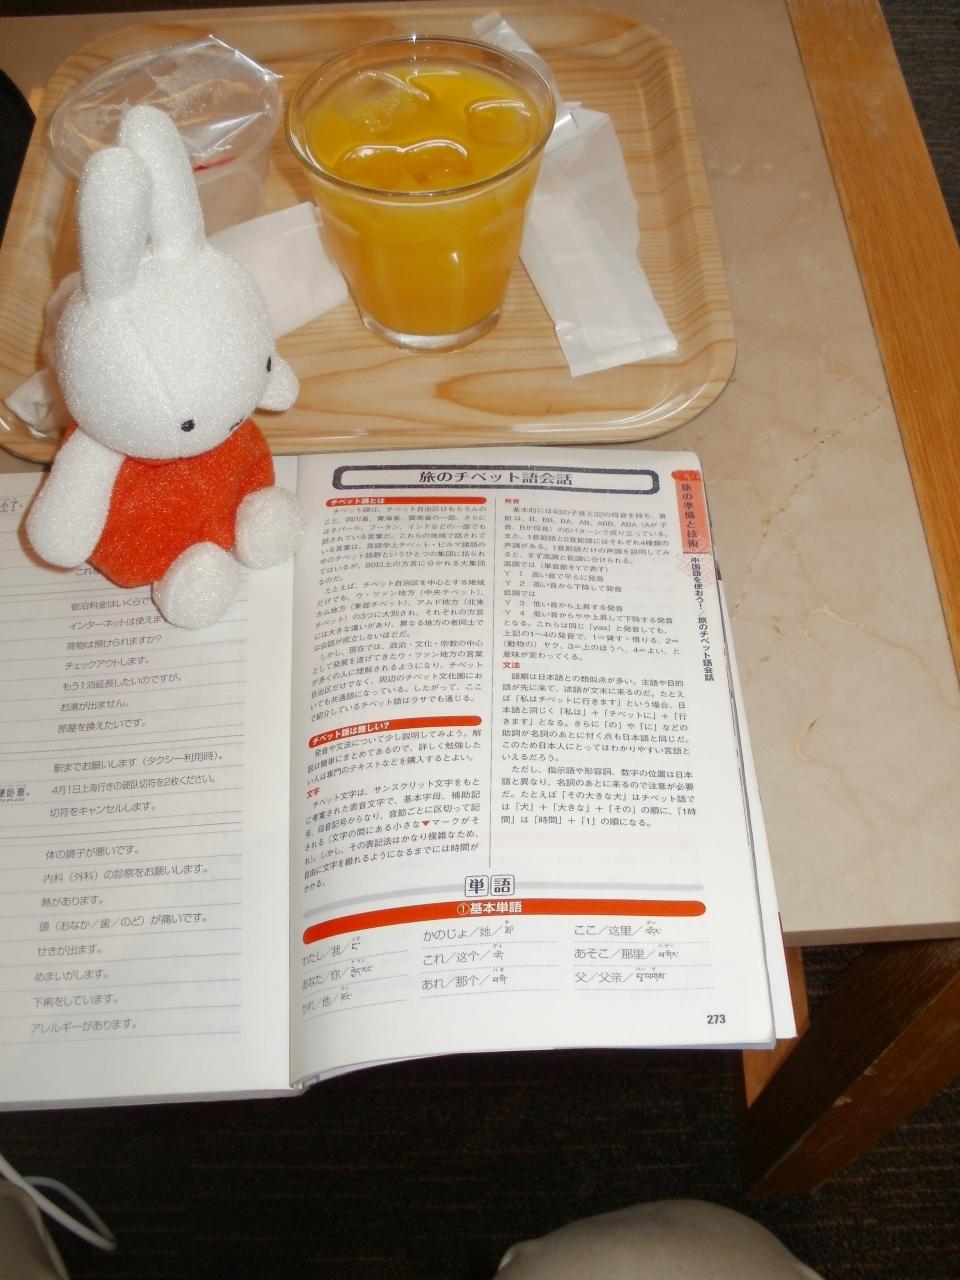 宿泊料金はいくらで
インターネットは使えま
荷物は預けられますか?
チェックアウトします。
もう1泊延長したいのですが。
お湯が出ません。
部屋を換えたいです。
駅までお願いします(タクシー利用時)。
4月1日上海行きの硬臥切符を2枚ください。
切符をキャンセルします。
体の調子が悪いです。
内科(外科)の診察をお願いします。
熱があります。
頭(おなか/歯/のど)が痛いです。
せきが出ます。
めまいがします。
下痢をしています。
アレルギーがあります。
旅のチベット語会話
チベット語とは
チベット語は、チベット自治区はもちろんの
こと、四川省、青海省、雲南省の一部、さらに
はネパール、ブータン、インドなどの一部でも
話されている言葉だ。これらの地域で話されて
いる言葉は、言語学上チベット・ビルマ語派の
中のチベット語群というひとつの集団に括られ
てはいるが、80以上の方言に分かれる大集団
なのだ。
たとえば、チベット自治区を中心とする地域
だけでも、ウ・ツァン地方(中央チベット)、
カム地方(東部チベット)、アムド地方(北東
チベット)の3つに大別され、それぞれの方言
には大きな違いがあり、異なる地方の者同士で
は会話が成立しないほどだ。
しかし、現在では、政治・文化・宗教の中心
として発展を遂げてきたウ・ツァン地方の言葉
が多くの人に理解されるようになり、チベット
自治区だけでなく、周辺のチベット文化圏にお
いても共通語になっている。したがって、ここ
で紹介しているチベット語はラサでも通じる。
チベット語は難しい?
発音や文法について少し説明してみよう。解
説は簡単にまとめてあるので、詳しく勉強した
い人は専門のテキストなどを購入するとよい。
文字
チベット文字は、サンスクリット文字をもと
に考案された表音文字で、基本字母、補助記
号、母音記号からなり、音節ごとに区切って記
される(文字の間にある小さな▼マークがそ
れ)。しかし、その表記法はかなり複雑なため、
自由に文字を綴れるようになるまでには時間が
かかる。
発音
基本的には43の子音と32の母音を持ち、音
節は、B、BB、BA、AB、ABB、ABA(Aが子
音、Bが母音)の6パターンで成り立っている。
また、1音節語と2音節語にはそれぞれ4種類の
声調がある。1音節語だけの声調を説明してみ
ると、まず高調と低調に分けられる。
高調では(単音節をYで表す)
Y 1 高い音で平らに発音
Y 2 高い音から下降して発音
低調では
Y 3 低い音から上昇する発音
Y 4 低い音からやや上昇して下降する発音
となる。これらは同じ「yaa」と発音しても、
上記の1~4の発音で、1=貸す・借りる、2=
(動物の)ヤク、3=上のほうへ、4=よい、と
意味が変わってくる。
文法
語順は日本語との類似点が多い。主語や目的
語が先に来て、述語が文末に来るのだ。たとえ
ば「私はチベットに行きます」という場合、日
本語と同じく「私は」+「チベットに」+「行
きます」となる。さらに「の」や「に」などの
助詞が名詞のあとに付く点も日本語と同じだ。
このため日本人にとってはわかりやすい言語と
いえるだろう。
ただし、指示語や形容詞、数字の位置は日本
語と異なり、名詞のあとに来るので注意が必要
だ。たとえば「その大きな犬」はチベット語で
は「犬」+「大きな」+「その」の順に、「1時
間」は「時間」+「1」の順になる。
旅の準備と技術
中国語を使おう!/旅のチベット語会話
単語
①基本単語
わたし/我/
あなた/你/
かれ/他/
かのじょ/她/
これ/这个/
あれ/那个/
ここ/这里/
あそこ/那里/
父/父亲/
273